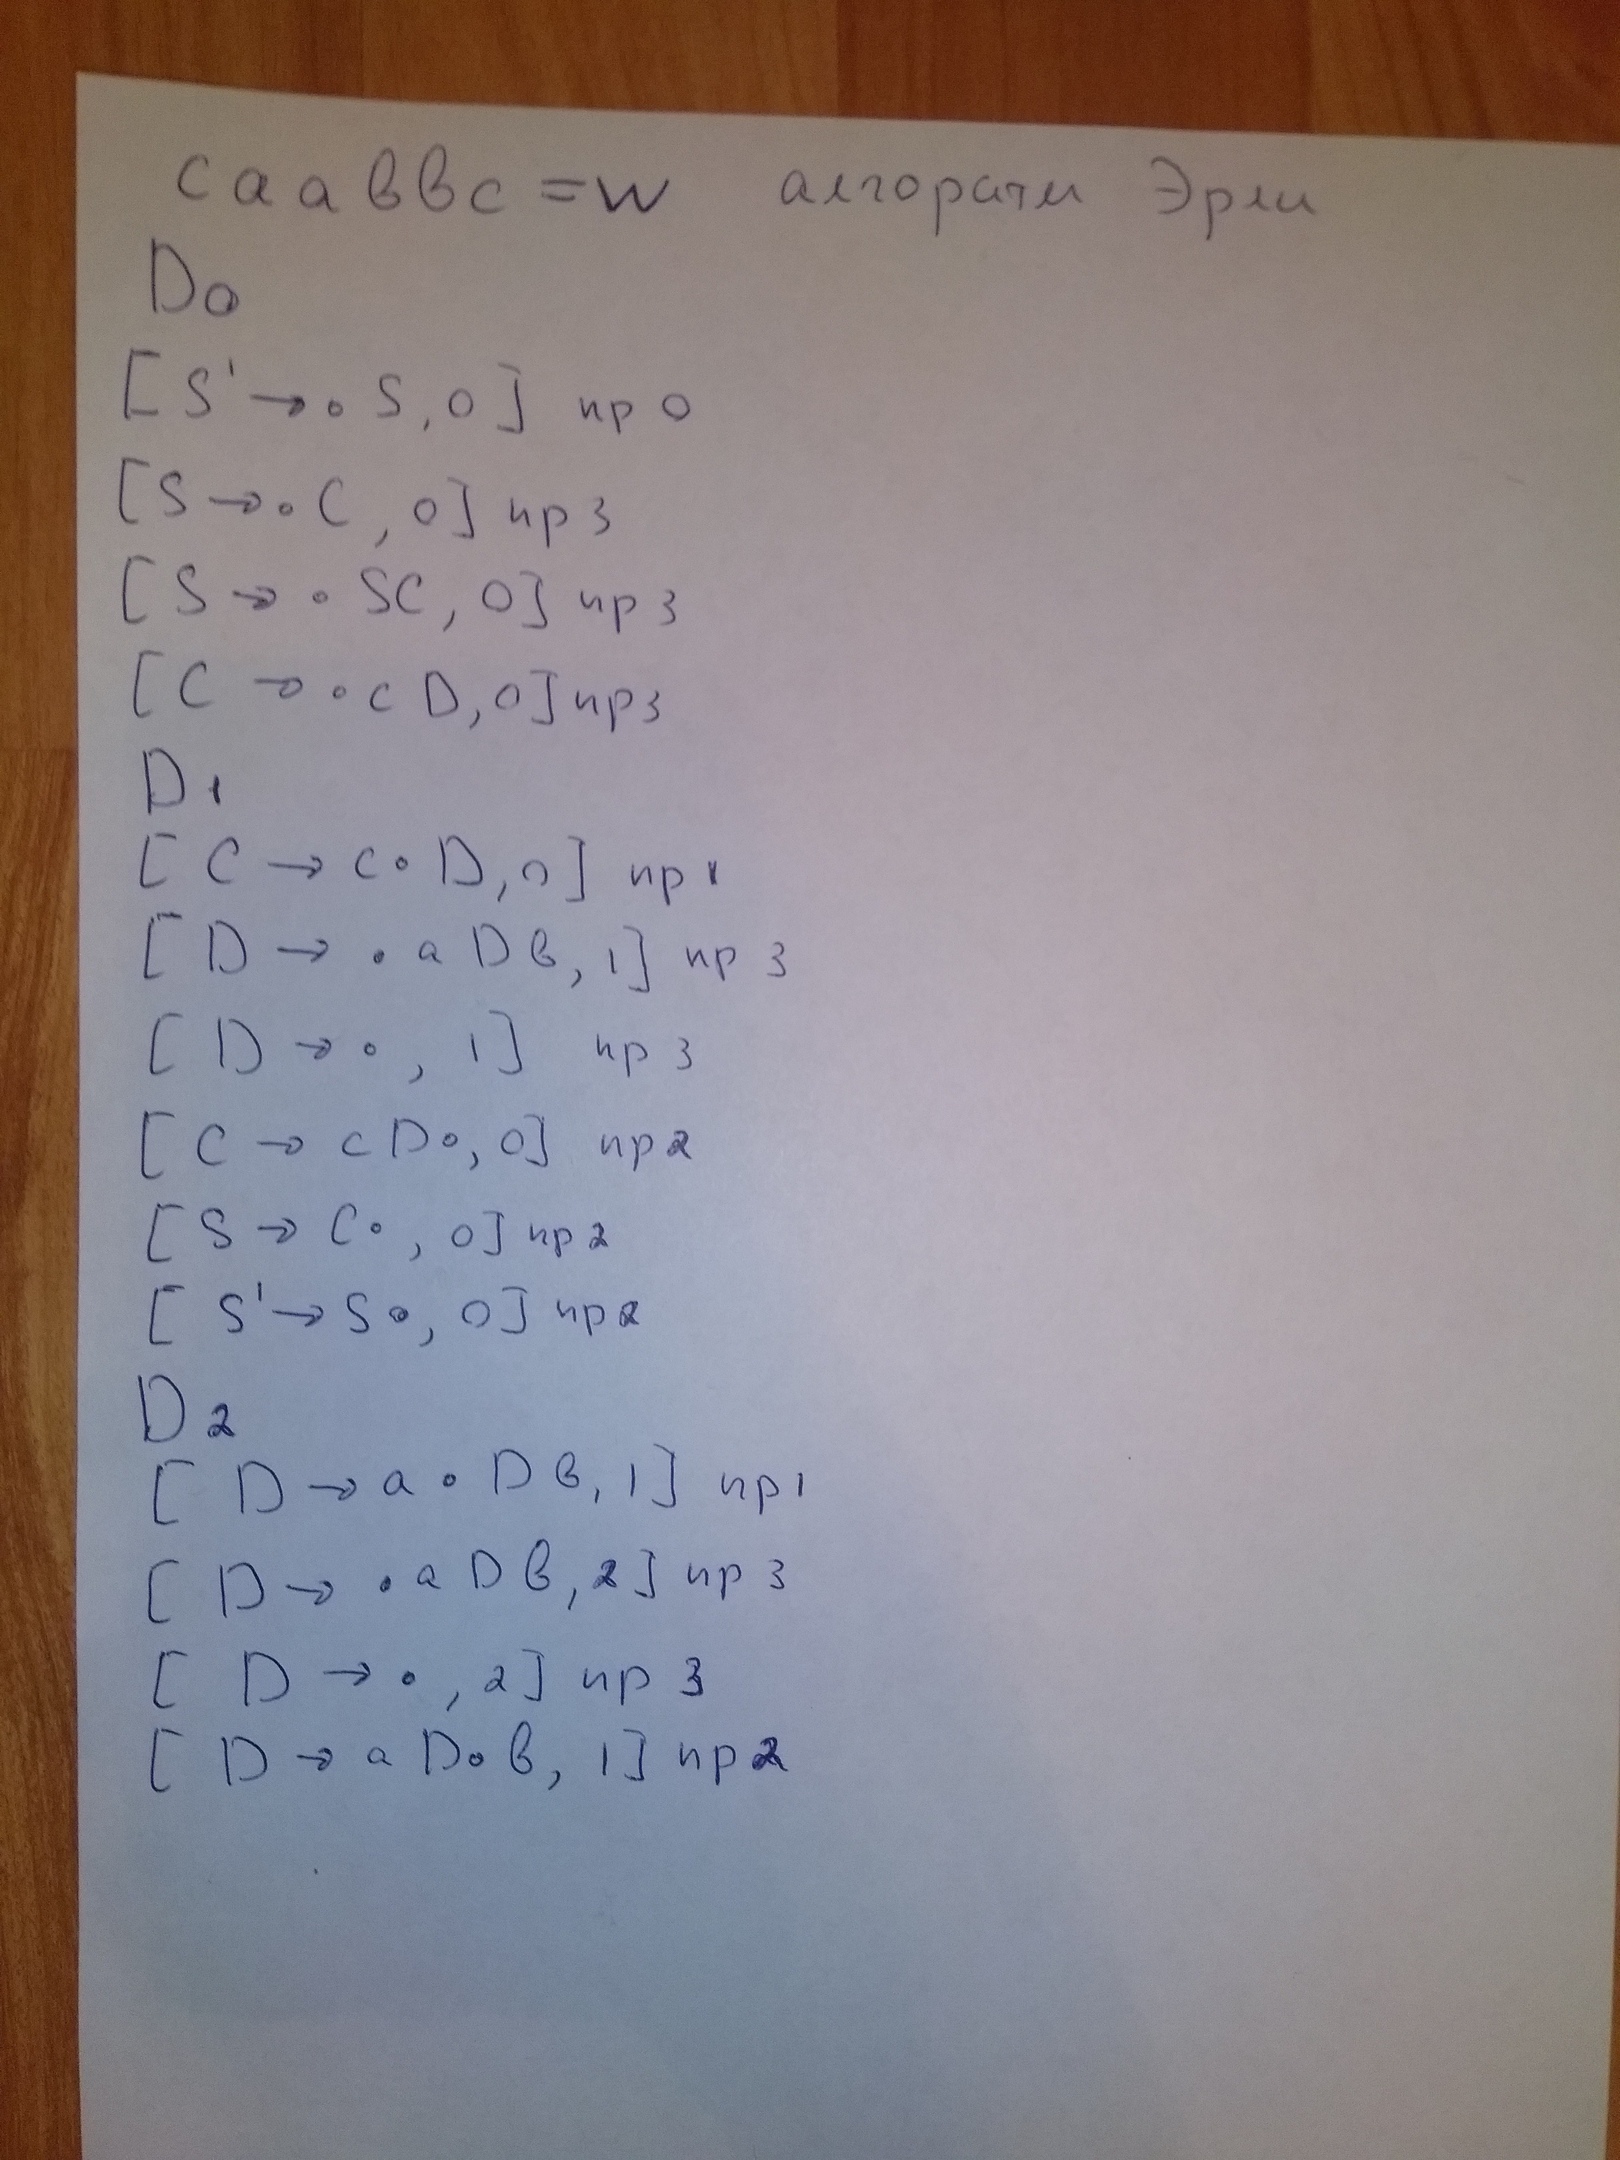 c a a b b c = w алгоритм Эрли
D0
[S' → • S, 0] пр 0
[S → • C, 0] пр 3
[S → • SC, 0] пр 3
[C → • c D, 0] пр 3
D1
[C → c • D, 0] пр 1
[D → • a D b, 1] пр 3
[D → •, 1] пр 3
[C → c D •, 0] пр 2
[S → C •, 0] пр 2
[S' → S •, 0] пр 2
D2
[D → a • D b, 1] пр 1
[D → • a D b, 2] пр 3
[D → •, 2] пр 3
[D → a D • b, 1] пр 2